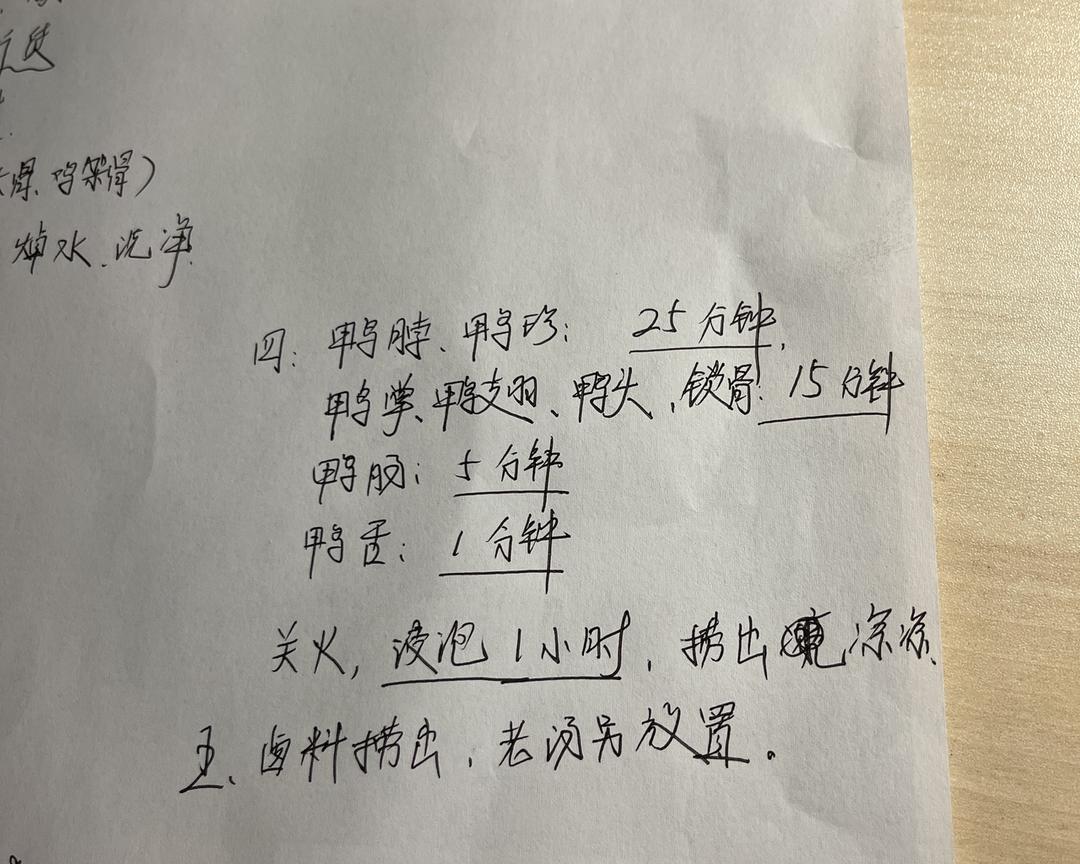 焯水、洗净
四：鸭脖、鸭珍：25分钟，
鸭掌、鸭翅、鸭头、锁骨：15分钟
鸭肠：5分钟
鸭舌：1分钟
关火，浸泡1小时，捞出 凉凉、
五、卤料捞出，老汤另放置。